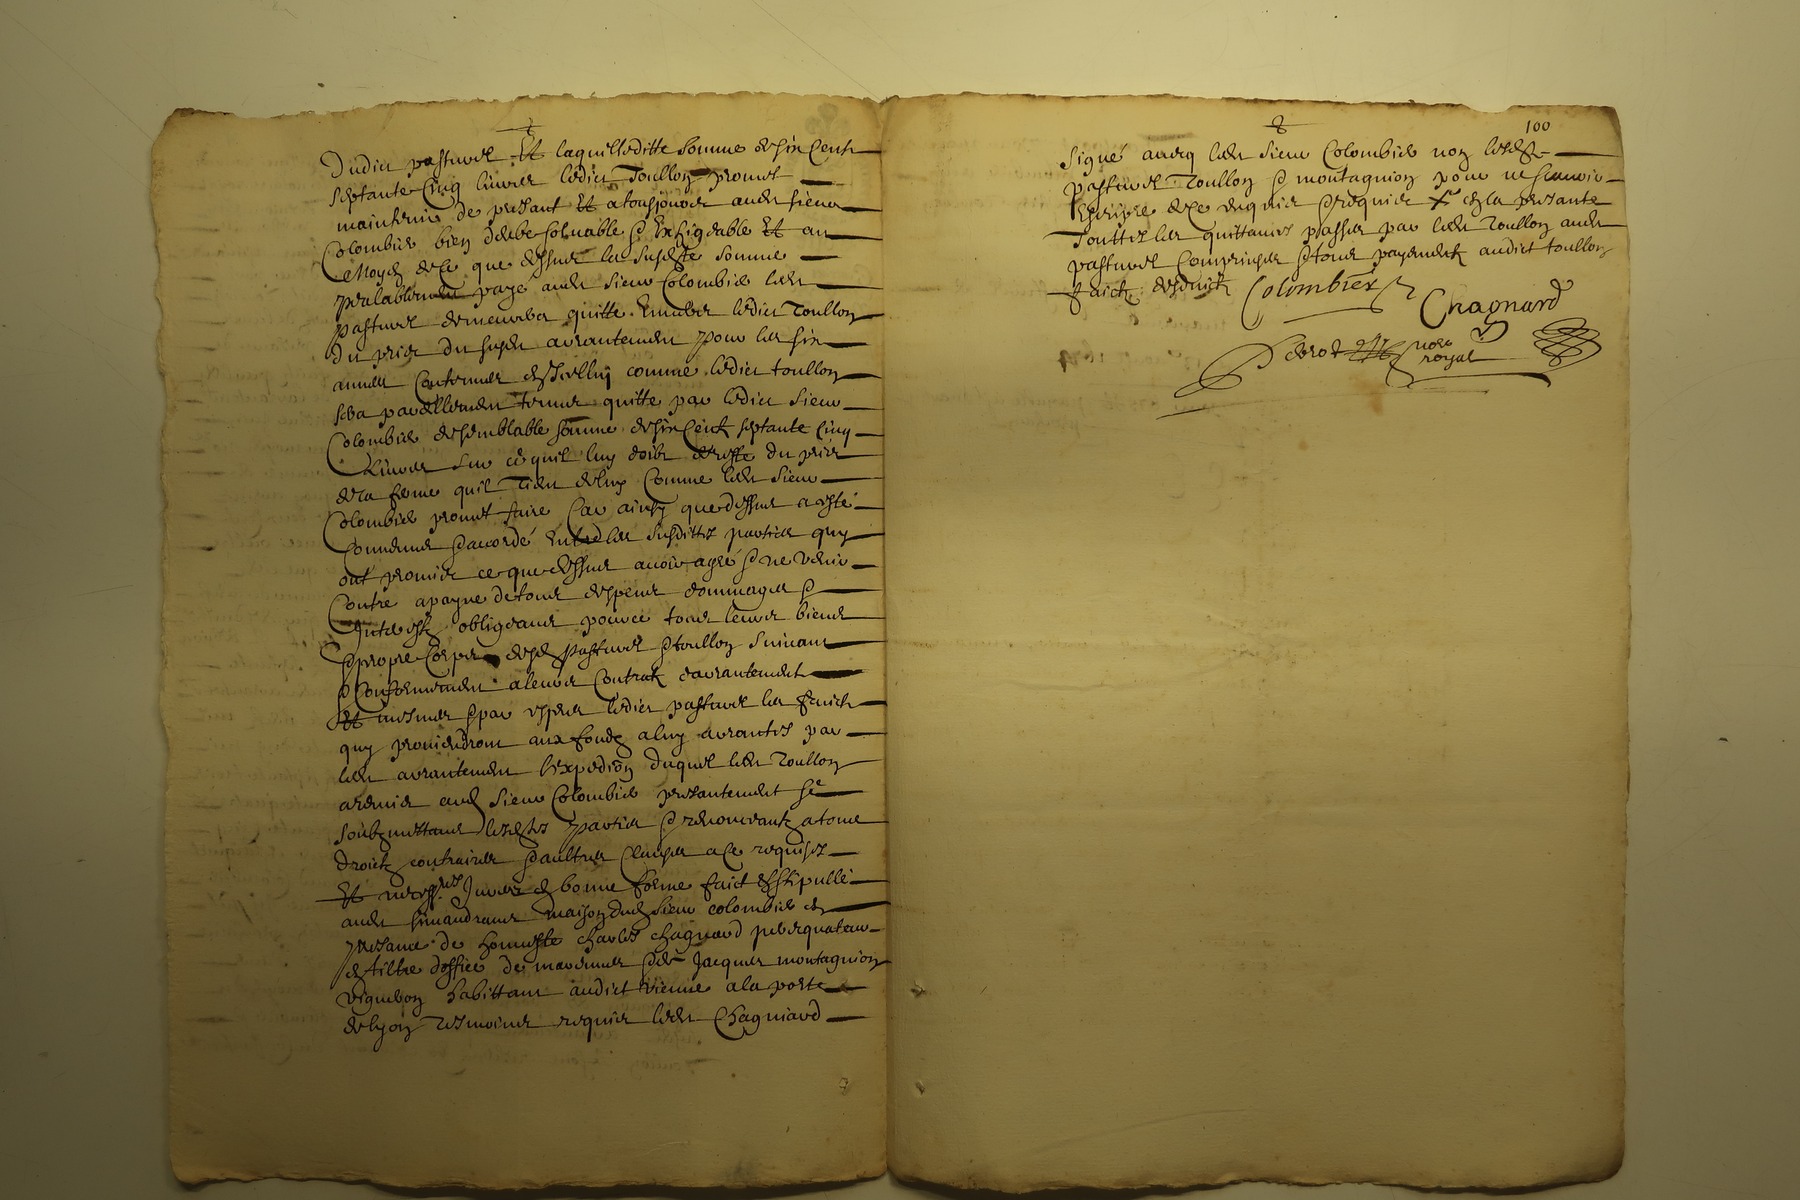 Dudict pasturel Et laquelleditte somme de six Centz
septante Cinq livres ledict Toullon promet
maintenir de presant Et a tousjours audt sieur
Colombier bien deube solvable & Exigeable Et au
Moyen de ce que dessus la susdte somme
prealablement paye audt sieur Colombier ledt
pasturel demeurera quitte Envers ledict Toullon
du prix du susdt arrantement pour les six
annees Contenues en Icelluy comme ledict toullon
sera pareillement tenus quitte par ledict sieur
Colombier de semblable somme de six Centz septante cinq
Livres sur ce quil luy doibt de reste du prix
de la ferme quil Tient de luy Comme ledt sieur
Colombier promet faire Car ainsy que dessus a esté
Convenus & accordé Entre les susdittes parties quy
ont promis ce que dessus avoir agré & ne venir
Contre a payne de tous despens dommages &
Interestz obligeans pour ce tous leurs biens
& propre Corps desdt Pasturel & toullon suivant
& Conformement a leurs Contratz darrantement
Et mesmes & par expres ledict pasturel les fruictz
quy proviendront aux fondz a luy arrantes par
ledt arrantement l'expedion duquel ledt Toullon
a remis audt sieur Colombier presantement se
soubzmettans lesdtes parties & renoncantz a tous
droictz contraires & aultres Clauses a ce requises
Et necessres Jurees en bonne forme faict & stipullé
audt maison dudt sieur colombier en
presance de honneste charles chagnard perequateur
en tiltre d'office de & de Jacques montagnion
vigneron habittant audict vienne a la porte
de lyon Tesmoins requis ledt Chagniard
100
Signé avecq ledt sieur Colombier non lesdts
pasturel Toullon & montagnion pour ne scavoir
Escripre de ce enquis & requis X en la presante
Touttes les quittances passees par ledt Toullon audt
pasturel Comprinses & tous payementz audict toullon
faictz Colombier
Chagnard
nore
royal